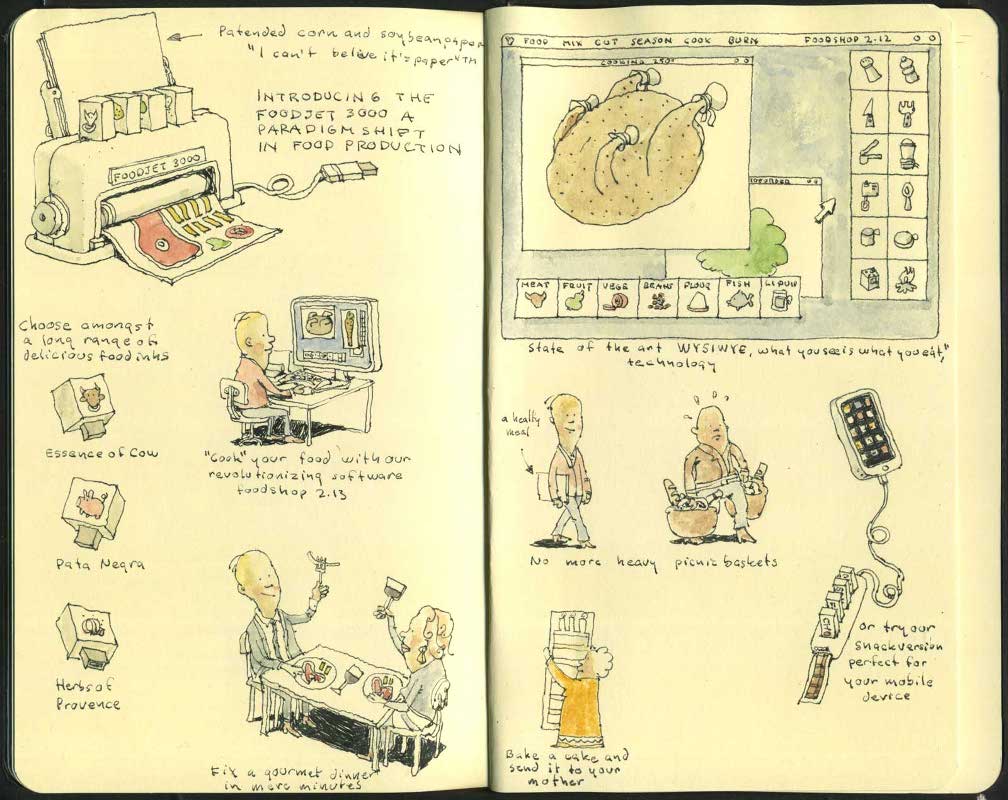 Patented corn and soybeanpaper
"I can't belive it's paper"TM
INTRODUCING THE
FOODJET 3000 A
PARADIGMSHIFT
IN FOOD PRODUCTION
FOODJET 3000
Choose amongst
a long range of
delicious foodinks
Essence of Cow
Pata Negra
Herbs of
Provence
"Cook" your food with our
revolutionizing software
foodshop 2.13
Fix a gourmet dinner
in mere minutes
FOOD MIX CUT SEASON COOK BURN FOODSHOP 2.12
COOKING 250°
MEAT FRUIT VEGG BEANS FLOUR FISH LIQUID
State of the art WYSIWYE, what you see is what you eat,"
technology
a healty
meal
No more heavy picnic baskets
or try our
snackversion
perfect for
your mobile
device
Bake a cake and
send it to your
mother